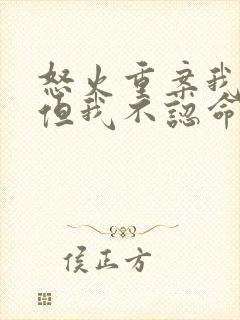 怒火重案我
但我不認命
侯正方